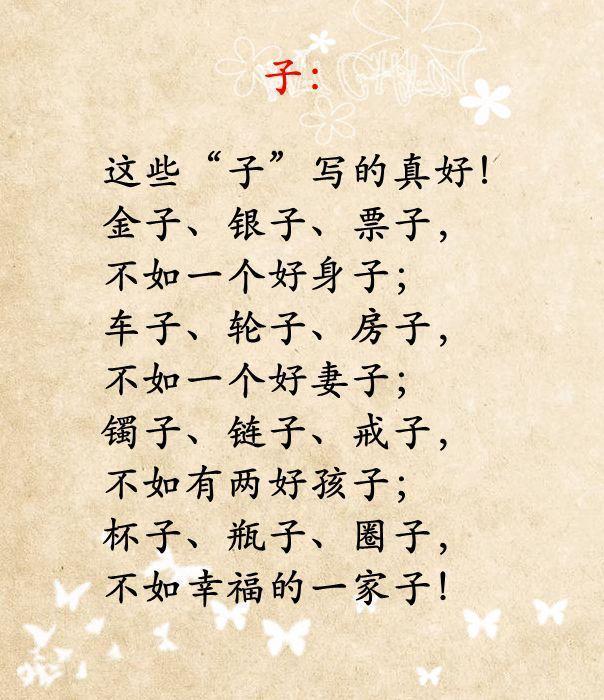 子：
这些“子”写的真好！
金子、银子、票子，
不如一个好身子；
车子、轮子、房子，
不如一个好妻子；
镯子、链子、戒子，
不如有两好孩子；
杯子、瓶子、圈子，
不如幸福的一家子！